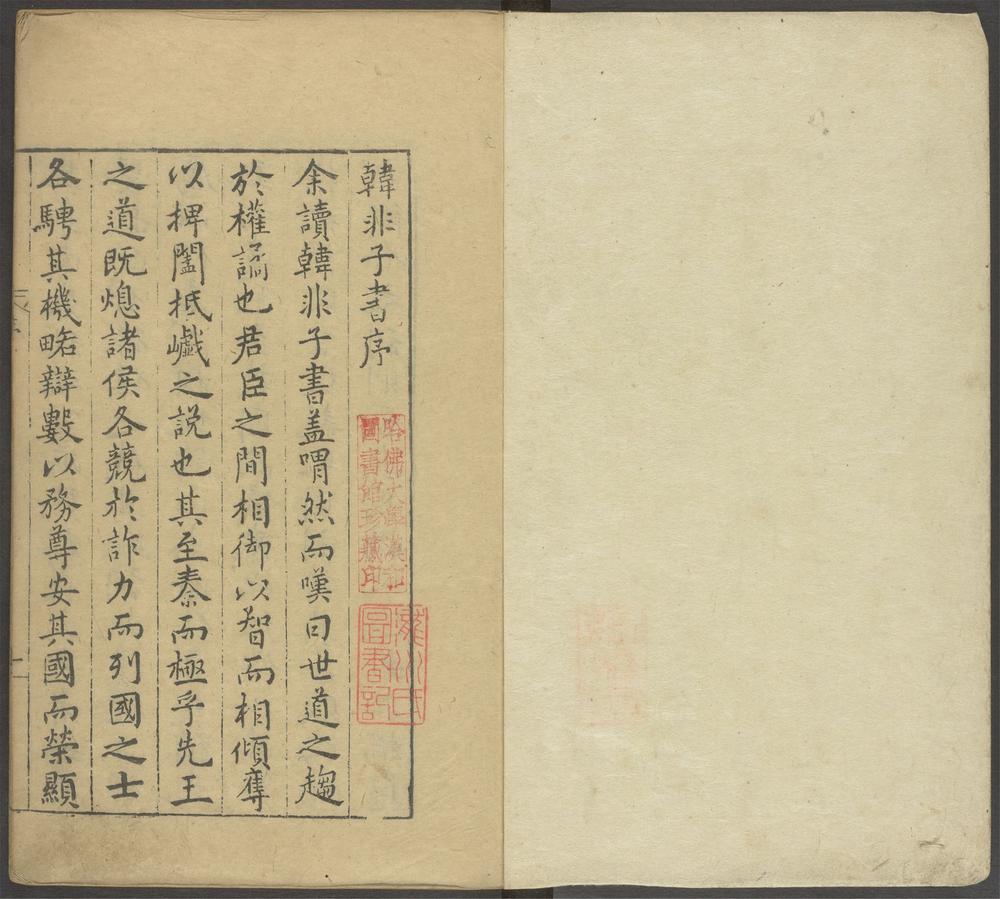 韓非子書序
余讀韓非子書盖喟然而嘆曰世道之趨
於權譎也君臣之間相御以智而相傾奪
以捭闔抵巇之說也其至秦而極乎先王
之道既熄諸侯各競於詐力而列國之士
各騁其機畧辯數以務尊安其國而榮顯
哈佛大學漢和
圖書館珍藏印
圖書記